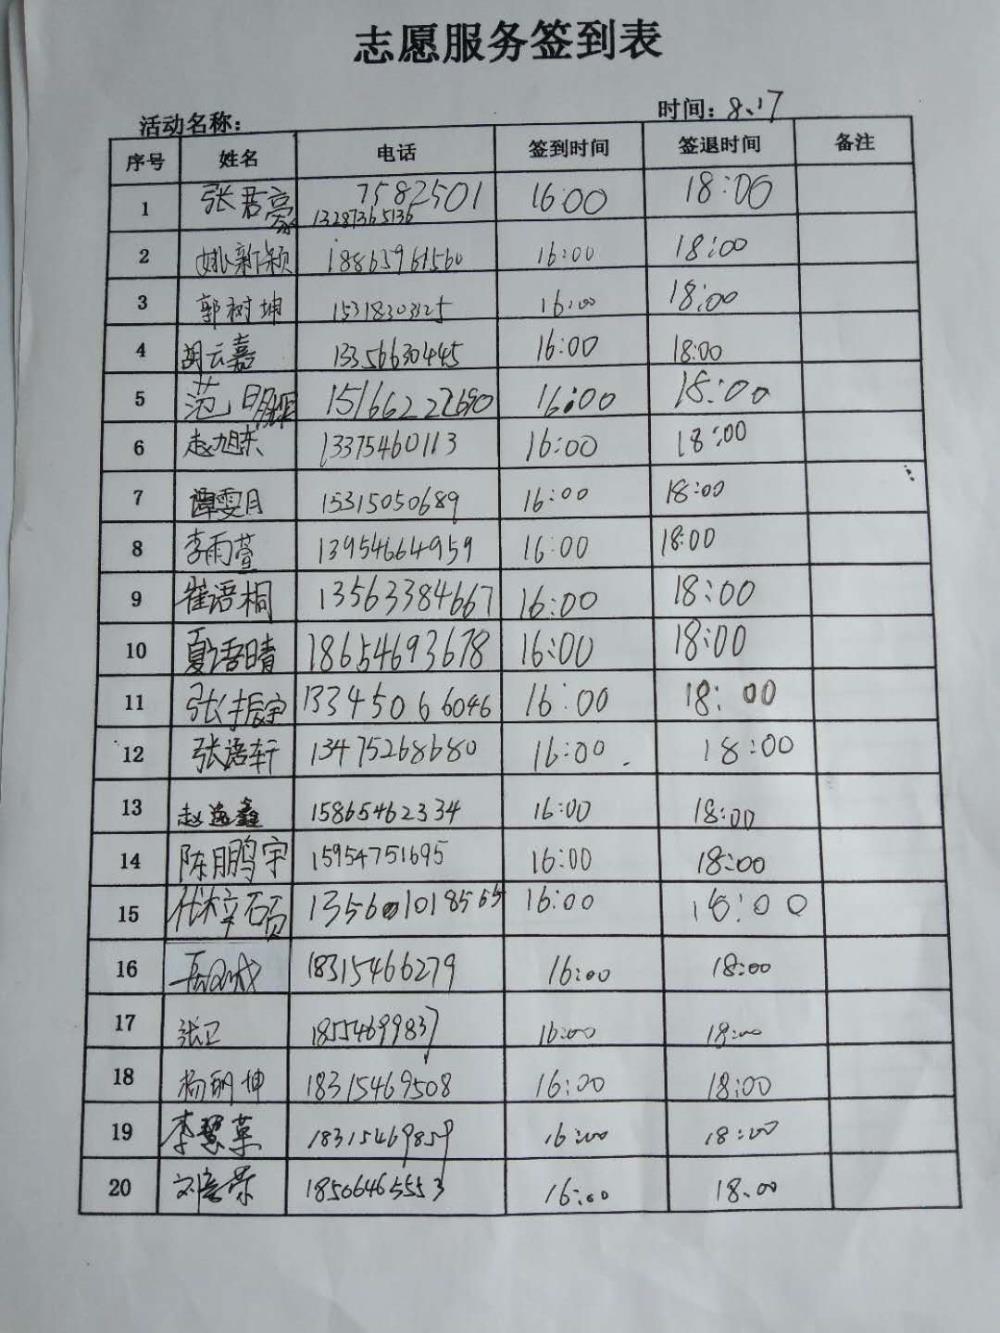 志愿服务签到表
活动名称： 时间：8.17
序号 姓名 电话 签到时间 签退时间 备注
1 张君豪 7582501 13287365136 16:00 18:00
2 姚新颖 18865961560 16:00 18:00
3 郭树坤 15318303125 16:00 18:00
4 胡云嘉 13356630445 16:00 18:00
5 范明 15166222690 16:00 18:00
6 赵旭东 13375460113 16:00 18:00
7 谭雯月 15315050689 16:00 18:00
8 李雨萱 13954664959 16:00 18:00
9 崔语桐 13563384667 16:00 18:00
10 夏语晴 18654693678 16:00 18:00
11 张振宇 13345066046 16:00 18:00
12 张语轩 13475268680 16:00 18:00
13 赵逸鑫 15865462334 16:00 18:00
14 陈鹏宇 15954751695 16:00 18:00
15 代梓硕 16:00 18:00
16 18315466279 16:00 18:00
17 张卫 18554699837 16:00 18:00
18 杨明坤 18315469508 16:00 18:00
19 李慧英 18315469859 16:00 18:00
20 18506465553 16:00 18.00